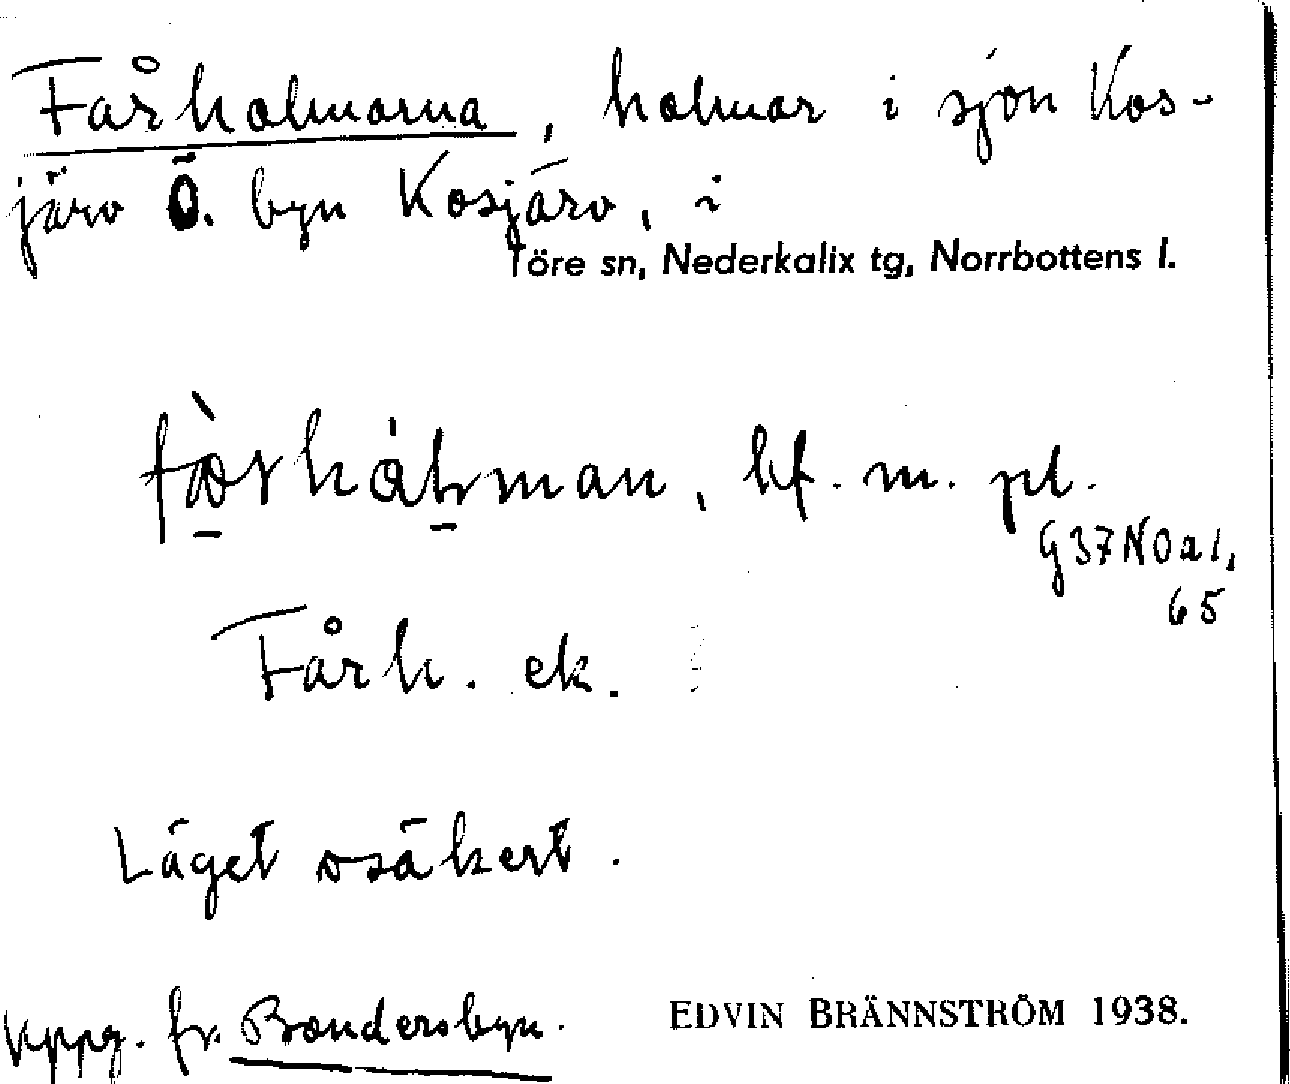 Fårholmarna, holmar i sjön Kos-
järv Ö. byn Kosjärv, i
Töre sn, Nederkalix tg, Norrbottens l.
bf. m. pl.
G37NOal,
65
Fårh. ek.
Läget osäkert.
Uppg. fr. Bondersbyn.
EDVIN BRÄNNSTRÖM 1938.